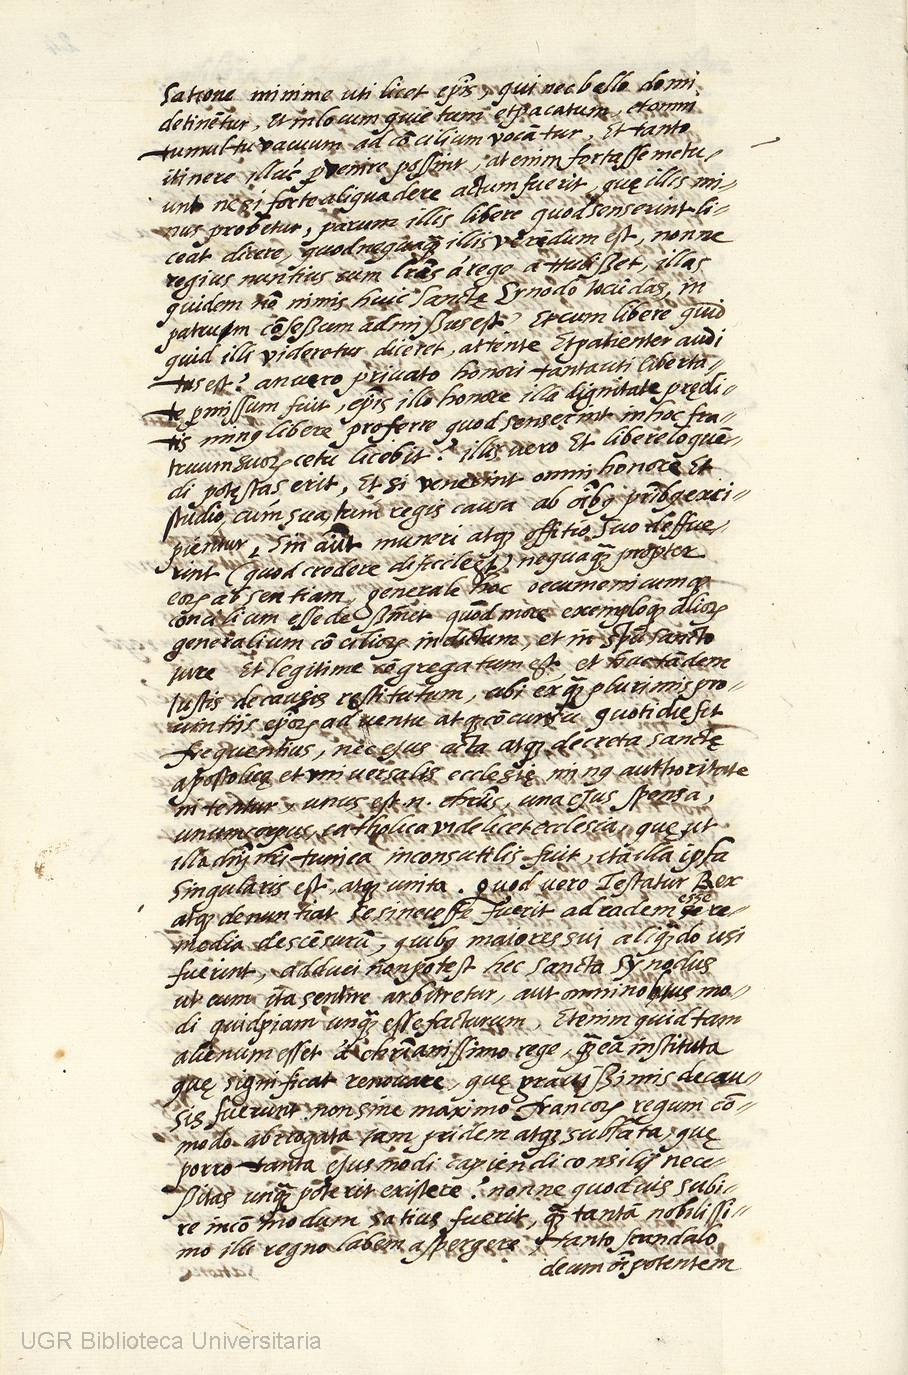 satione minime uti licet ep̃is, qui nec bello domi
detinẽtur, et in locum quietum et pacatum, et omni
tumultu vacuum ad cõcilium vocãtur, et tanto
itinere illuc pvenire possint, at enim fortasse metu,
unt ne si forte aliqua de re actum fuerit, quę illis mi,,
nus probetur, parum illis libere quod senserint li,,
ceat dicere, quod nequaq̃ illis verẽdum est, nonne
regius nuntius cum lr̃as a rege attulisset, illas
quidem nõ nimis huic sanctę Synodo iocũdas, in
patrum cõsessum admissus est? Et cum libere quid
quid illi videretur diceret, attente et patienter audi
tus est? an vero privato homini tantaviti liberta,,
te pmissum fuit, ep̃is illo honore illa dignitate prędi,,
tis minq libere proferre quod senserint in hoc fra,,
truum suoꝝ cetu licebit? illis vero et libere loquẽ,,
di potestas erit, et si venerint omni honore et
studio, cum sua tum regis causa ab oĩbq pr̃ibq exci,,
pientur, Sin aũt muneri atqȝ offitio suo deffue,,
rint (quod credere dificile est) nequaq̃ propter
eoꝝ absentiam, generale hoc oecumenicumqȝ
concilium esse desinet quod more exemploqȝ alioꝝ
generalium cõcilioꝝ indictum, et in sp̃u sancto
jure et legitime cõgregatum est, et hac tãdem
iustis de causis restitutum, ubi ex q̃ plurimis pro,,
vintiis ep̃oꝝ adventu atqȝ cõcursu quotidie fit
frequentius, nec ejus acta atqȝ decreta sanctę
apostolicę et universalis ecclesię minq authoritate
nitentur, unus est .n. chr̃us, una ejus sponsa,
unum corpus, catholica videlicet ecclesia, quę ut
illa dñj nr̃i tunica inconsutilis fuit, ita illa ipsa
singularis est, atqȝ unita. Quod vero Testatur Rex
atqȝ denuntiat se si necesse fuerit ad eadem esse re,,
media descẽsurũ, quibq maiores sui aliq̃do usi
fuerint, adduci non potest hec sancta Synodus
ut eum ita sentire arbitretur, aut omnino hujus mo,,
di quidpiam unq̃ esse facturum, Etenim quid tam
alienum esset a chr̃ianissimo rege, q̃ ea instituta
quę significat renovare, quę gravissimis de cau,,
sis fuerunt non sine maximo francoꝝ regum cõ,,
modo abrogata iam pridem atqȝ sublata, quę
porro tanta ejusmodi capiendi consilij nece,,
ssitas unq̃ poterit existere? nonne quod vis subi,,
re incõmodum satius fuerit, q̃ tantã nobilissi,,
mo illi regno labem aspergere, tanto scandalo
deum oĩpotentem
UGR Biblioteca Universitaria